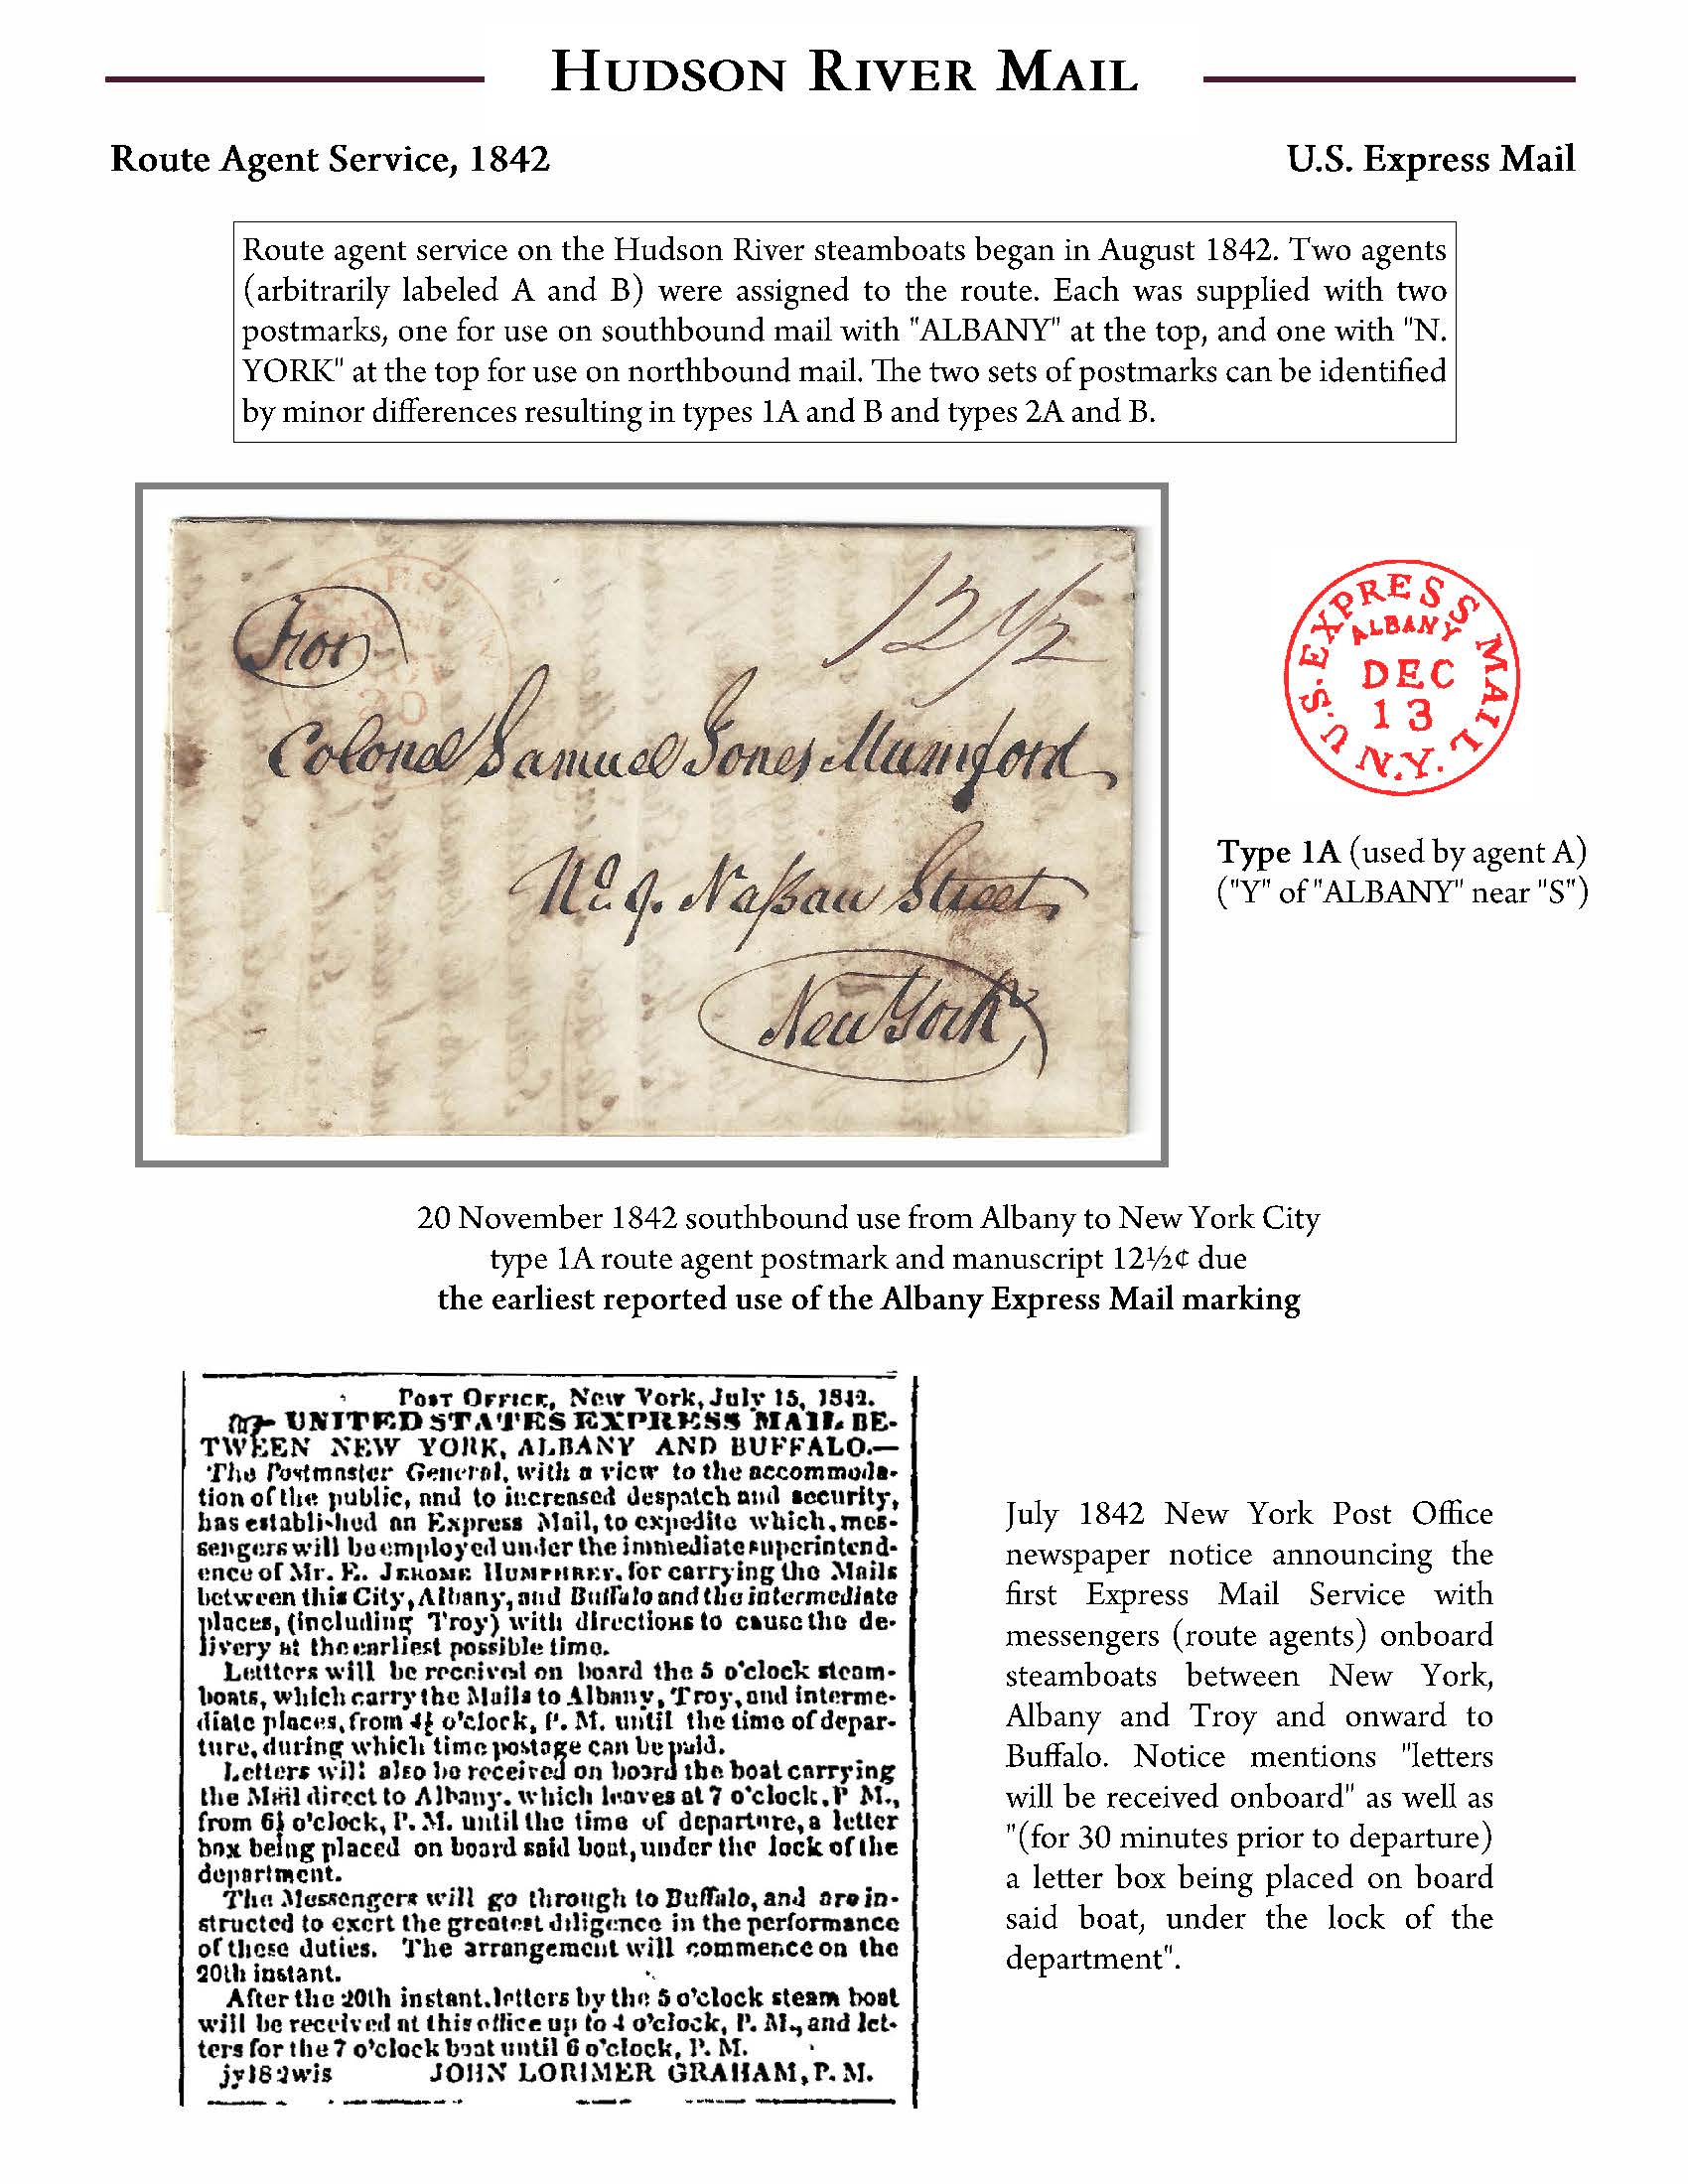 HUDSON RIVER MAIL
Route Agent Service, 1842
U.S. Express Mail
Route agent service on the Hudson River steamboats began in August 1842. Two agents
(arbitrarily labeled A and B) were assigned to the route. Each was supplied with two
postmarks, one for use on southbound mail with "ALBANY" at the top, and one with "N.
YORK" at the top for use on northbound mail. The two sets of postmarks can be identified
by minor differences resulting in types 1A and B and types 2A and B.
12 1/2
Colonel Samuel Jones Mumford
No. 9. Naſsau Street,
New York
20
U.S. EXPRESS MAIL
ALBANY
DEC
13
N.Y.
Type 1A (used by agent A)
("Y" of "ALBANY" near "S")
20 November 1842 southbound use from Albany to New York City
type 1A route agent postmark and manuscript 12½¢ due
the earliest reported use of the Albany Express Mail marking
POST OFFICE, New York, July 15, 1842.
UNITED STATES EXPRESS MAIL BE-
TWEEN NEW YORK, ALBANY AND BUFFALO.—
The Postmaster General, with a view to the accommoda-
tion of the public, and to increased despatch and security,
has established an Express Mail, to expedite which, mes-
sengers will be employed under the immediate superintend-
ence of Mr. E. JEROME HUMPHREY, for carrying the Mails
between this City, Albany, and Buffalo and the intermediate
places, (including Troy) with directions to cause the de-
livery at the earliest possible time.
Lettters will be received on board the 5 o'clock steam-
boats, which carry the Mails to Albany, Troy, and interme-
diate places, from 4½ o'clock, P. M. until the time of depar-
ture, during which time postage can be paid.
Letters will also be received on board the boat carrying
the Mail direct to Albany, which leaves at 7 o'clock, P M.,
from 6½ o'clock, P. M. until the time of departure, a letter
box being placed on board said boat, under the lock of the
department.
The Messengers will go through to Buffalo, and are in-
structed to exert the greatest diligence in the performance
of these duties. The arrangement will commence on the
20th instant.
After the 20th instant, letters by the 5 o'clock steam boat
will be received at this office up to 4 o'clock, P. M., and let-
ters for the 7 o'clock boat until 6 o'clock, P. M.
jy18 2wis JOHN LORIMER GRAHAM, P. M.
July 1842 New York Post Office
newspaper notice announcing the
first Express Mail Service with
messengers (route agents) onboard
steamboats between New York,
Albany and Troy and onward to
Buffalo. Notice mentions "letters
will be received onboard" as well as
"(for 30 minutes prior to departure)
a letter box being placed on board
said boat, under the lock of the
department".